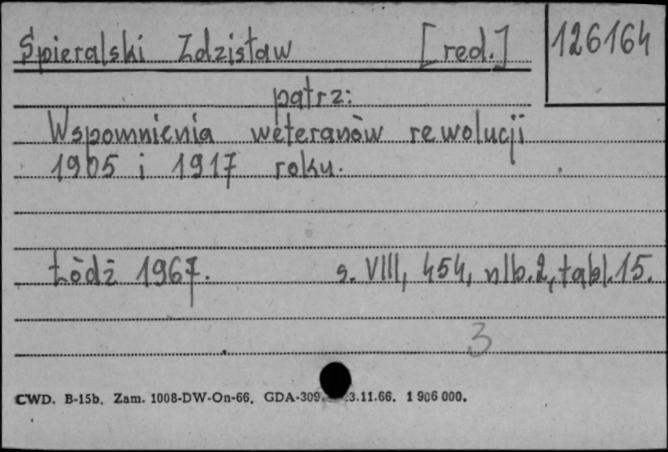 Spieralski Zdzisław [red.] 126164
patrz:
Wspomnienia weteranów rewolucji
1905 i 1917 roku.
Łódź 1967. s. VIII, 454, nlb. 2, tabl. 15.
3
CWD. B-15b. Zam. 1008-DW-On-66. GDA-309 3.11.66. 1 906 000.